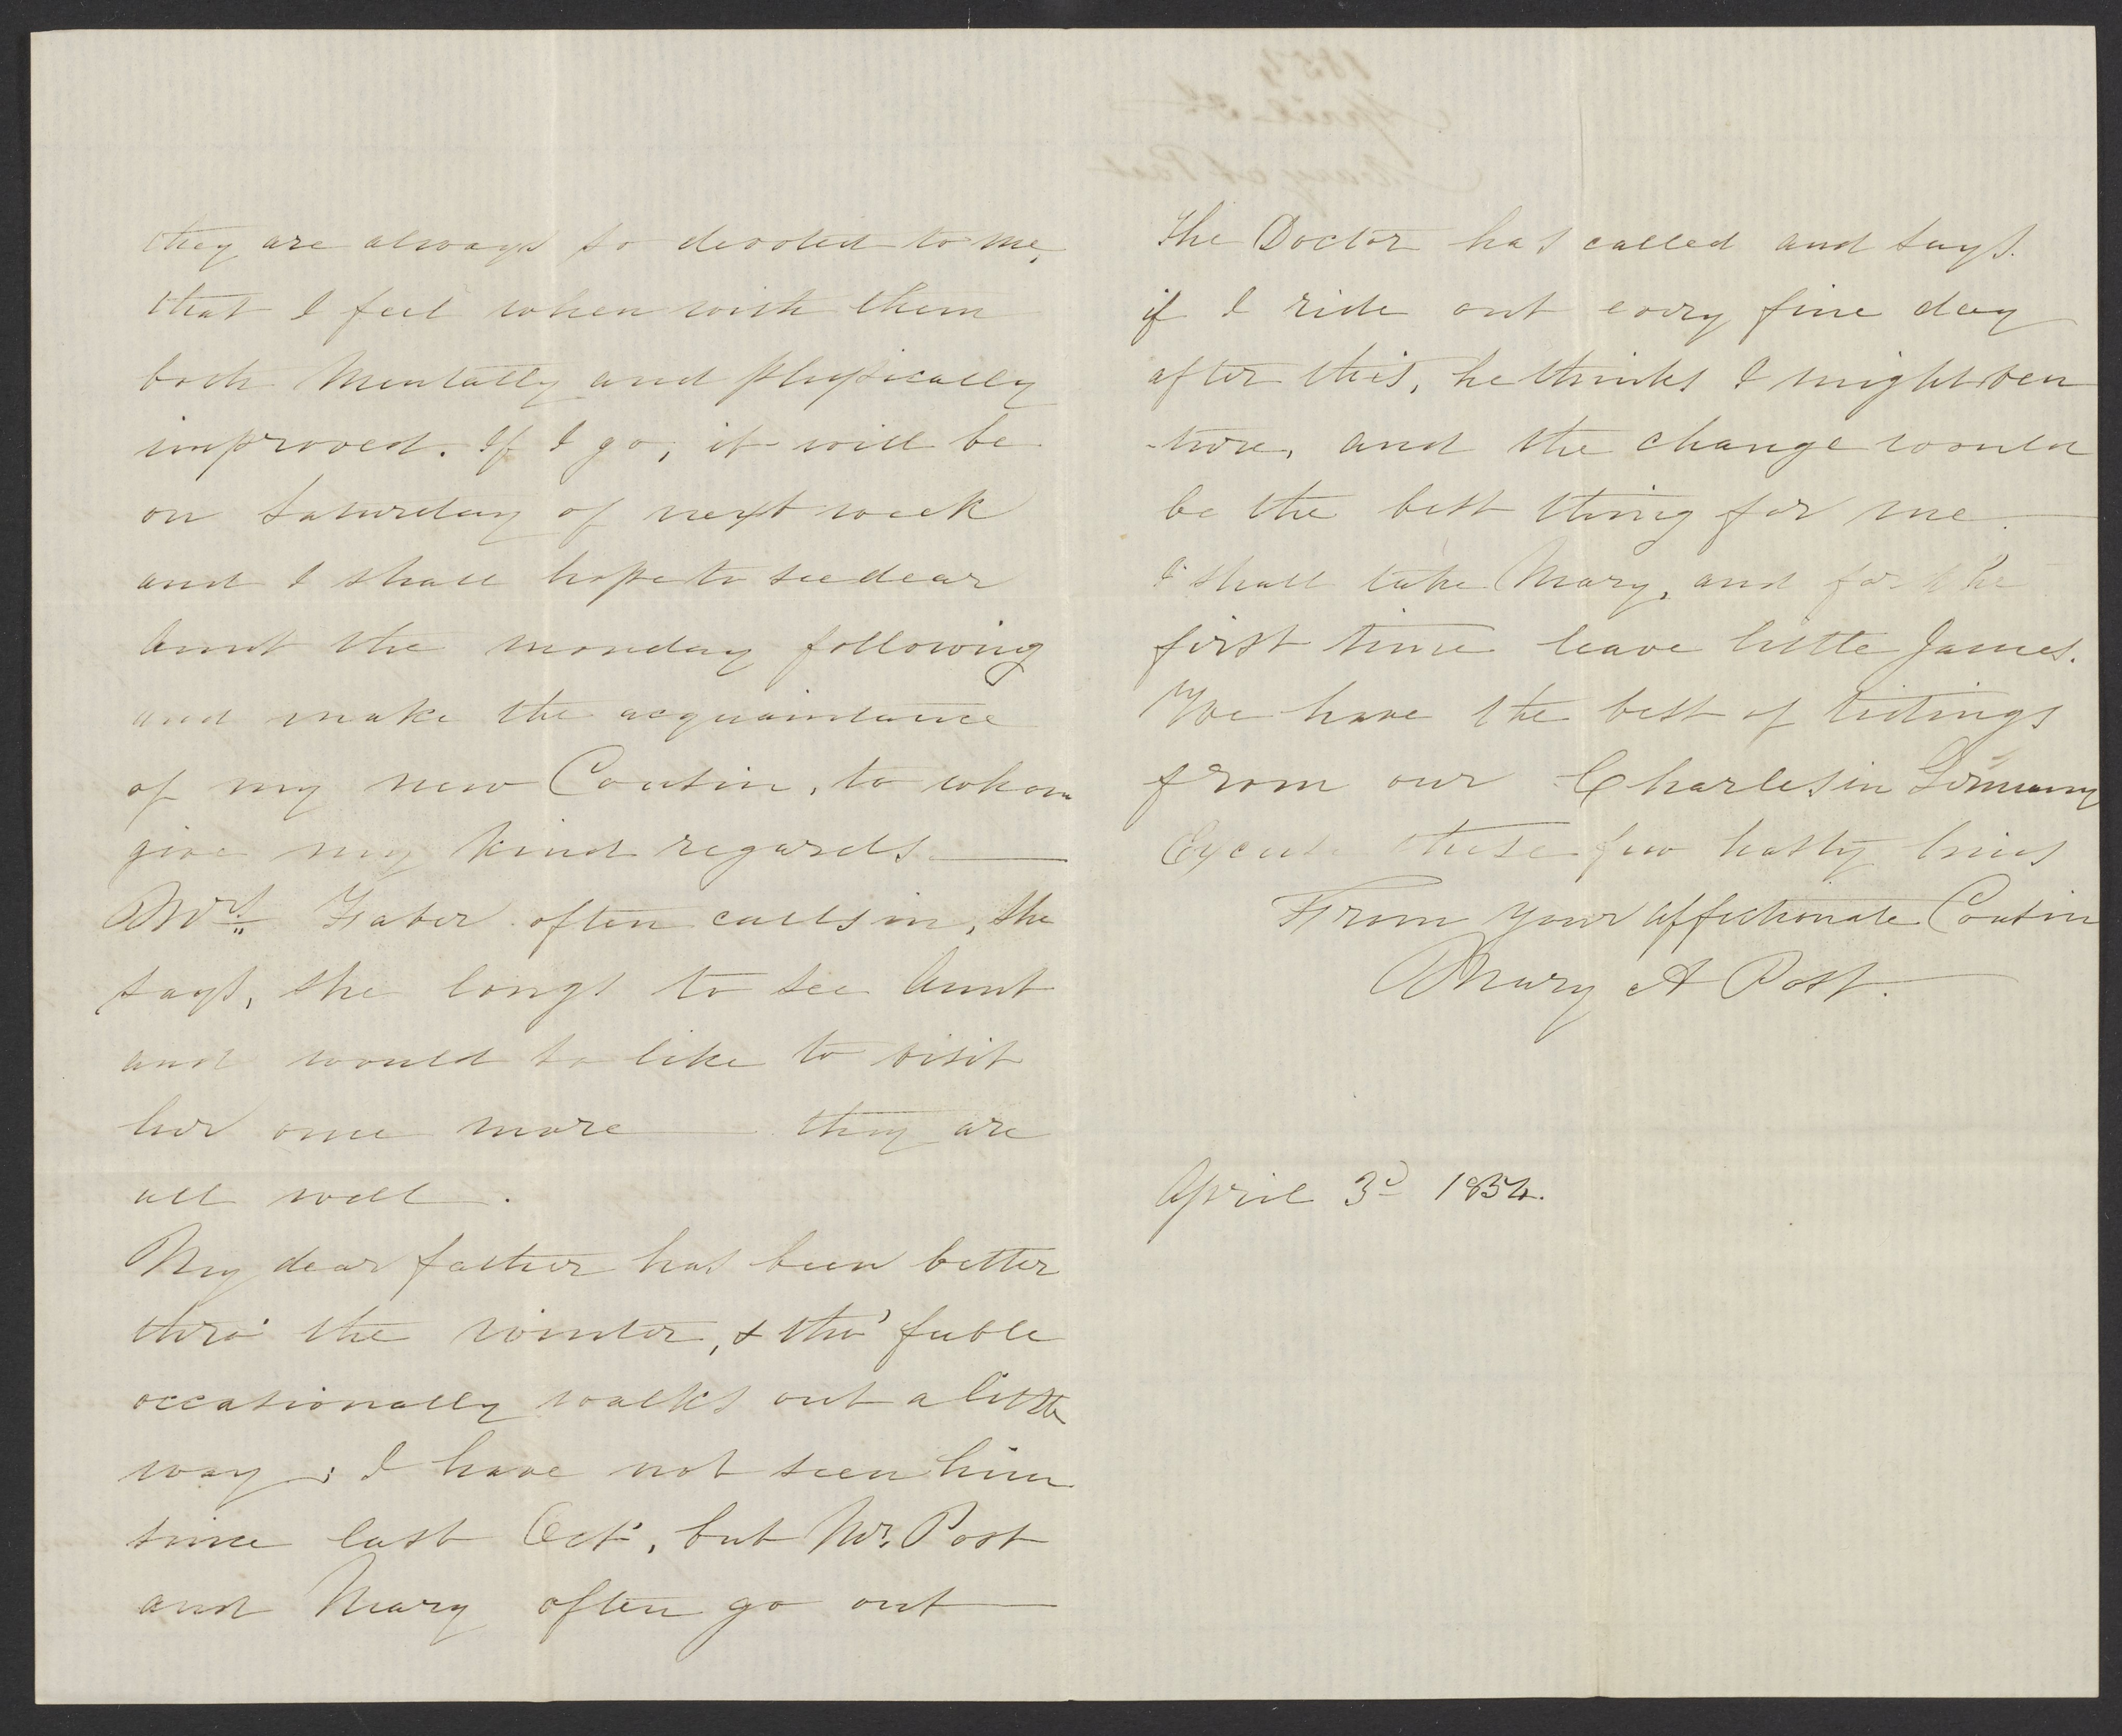 they are always so devoted to me,
that I feel when with them
both Mentally and physically
improved. If I go, it will be
on Saturday of next week
and I shall hope to see dear
Aunt the monday following
and make the acquaintance
of my new Cousin, to whom
give my kind regards
Mrs. Faber often calls in, she
says, she longs to see Aunt
and would so like to visit
her once more they are
all well.
My dear father has been better
thro' the winter, & tho' feeble
occasionally walks out a little
way; I have not seen him
since last Oct', but Mr. Post
and Mary often go out
The Doctor has called and says.
if I ride out every fine day
after this, he thinks I might ven
-ture, and the change would
be the best thing for me.
I shall take Mary, and for the
first time leave little James.
We have the best of tidings
from our Charles in Germany
Excuse these few hasty lines
From your affectionate Cousin
Mary A Post.
April 3d 1854.